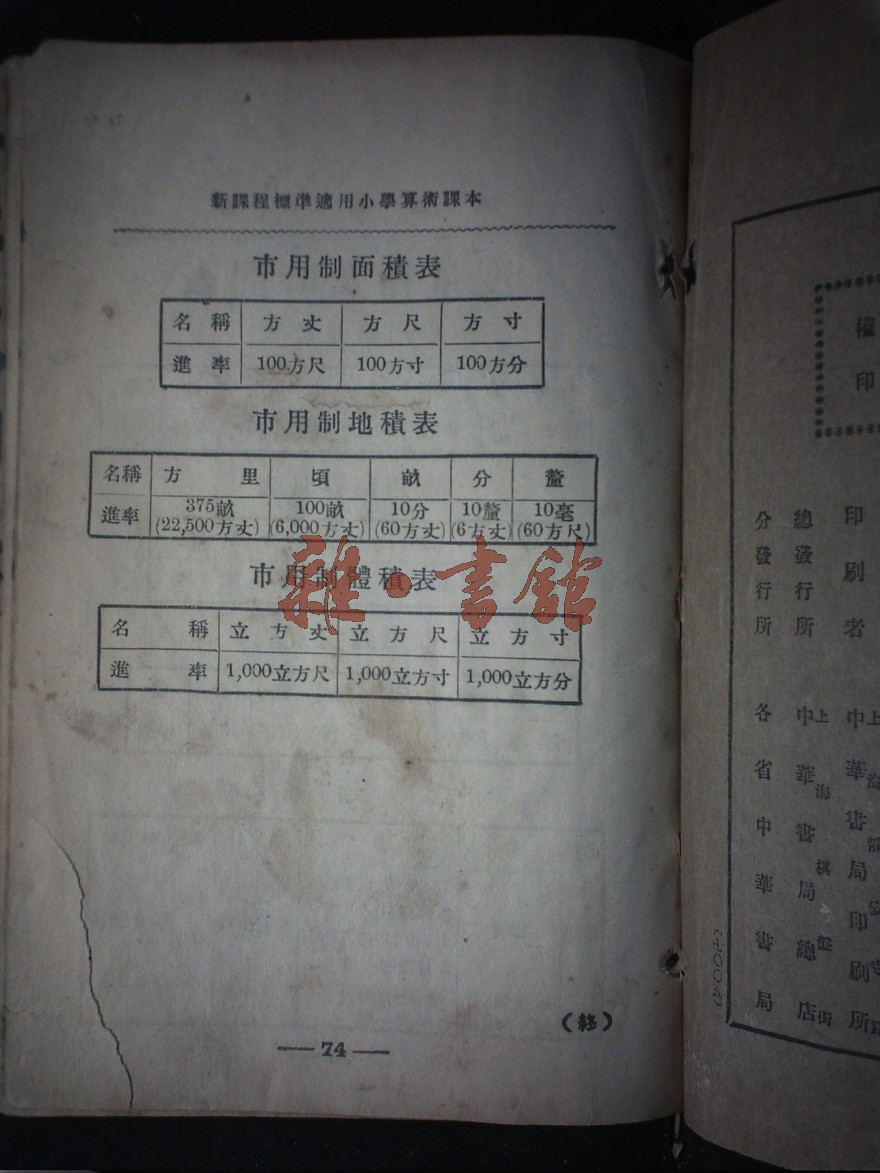 新課程標準適用小學算術課本
市用制面積表
名稱 方丈 方尺 方寸
進率 100方尺 100方寸 100方分
市用制地積表
名稱 方里 頃 畝 分 釐
進率 375畝 100畝 10分 10釐 10毫
(22,500方丈) (6,000方丈) (60方丈) (6方丈) (60方尺)
雜·書館
市用制體積表
名稱 立方丈 立方尺 立方寸
進率 1,000立方尺 1,000立方寸 1,000立方分
(終)
74
權
印
印刷者 中華書局印刷所
總發行所 中華書局總店
上海棋盤街
分發行所 各省中華書局